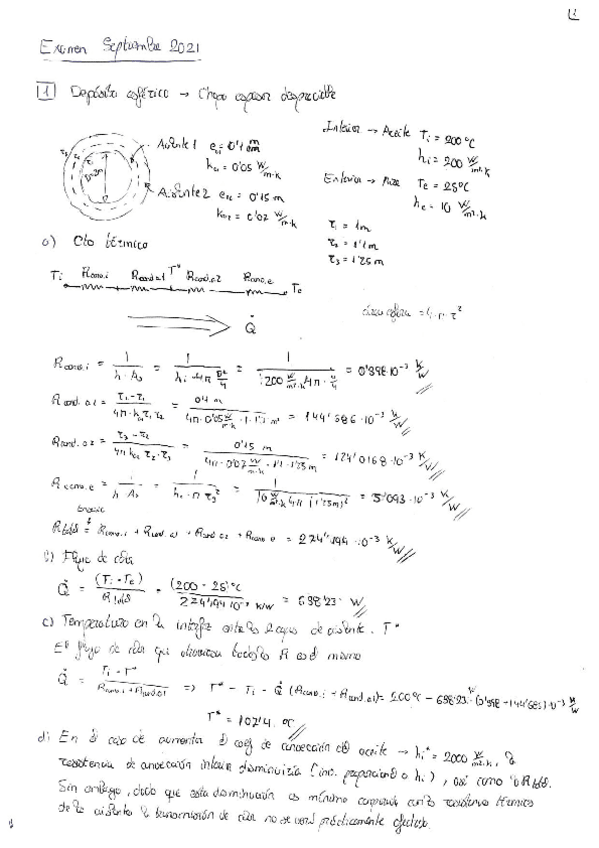 12
Examen Septiembre 2021
1 Depósito esférico → Chapa espesor despreciable
Aislante 1 e_a1 = 0'1 m
k_a1 = 0'05 W/m·K
Aislante 2 e_a2 = 0'15 m
k_a2 = 0'07 W/m·K
Interior → Aceite T_i = 200°C
h_i = 200 W/m²·K
Exterior → T_e = 25°C
h_e = 10 W/m²·K
r_1 = 1m
r_2 = 1'1m
r_3 = 1'25m
a) Cto térmico
T_i R_conv.i R_cond.a1 T* R_cond.a2 R_conv.e T_e
Q̇
área esfera = 4·π·r²
R_conv.i = 1/(h·A_s) = 1/(h_i·4π D²/4) = 1/(200 W/m²·K · 4π · 4/4) = 0'398·10⁻³ K/W
R_cond.a1 = (r_2 - r_1)/(4π·k_a1·r_1·r_2) = 0'1 m/(4π·0'05 W/m·K·1·1'1 m²) = 144'686·10⁻³ K/W
R_cond.a2 = (r_3 - r_2)/(4π k_a2 r_2·r_3) = 0'15 m/(4π·0'07 W/m·K·1'1·1'25m) = 124'0168·10⁻³ K/W
R_conv.e = 1/(h·A_s) = 1/(h_e·π r_3²) = 1/(10 W/m²·K 4π (1'25m)²) = 5'093·10⁻³ K/W
R_total = R_conv.i + R_cond.a1 + R_cond.a2 + R_conv.e = 274'194·10⁻³ K/W
b) Flujo de calor
Q̇ = (T_i - T_e)/R_total = (200 - 25)°C/(274'194·10⁻³ K/W) = 638'23 W
c) Temperatura en la interfaz entre las capas de aislante. T*
El flujo de calor que atraviesa todas las R es el mismo
Q̇ = (T_i - T*)/(R_conv.i + R_cond.a1) ⇒ T* = T_i - Q̇ (R_conv.i + R_cond.a1) = 200°C - 638'23 W·(0'398 + 144'686)·10⁻³ K/W
T* = 107'4 °C
d) En el caso de aumentar el coef de convección del aceite → h_i* = 2000 W/m²·K, la
resistencia de convección interior disminuiría (inv. proporcional a h_i), así como la R_total.
Sin embargo, dado que esta disminución es mínima comparada con la resistencia térmica
de los aislantes la transmisión de calor no se verá prácticamente afectada.